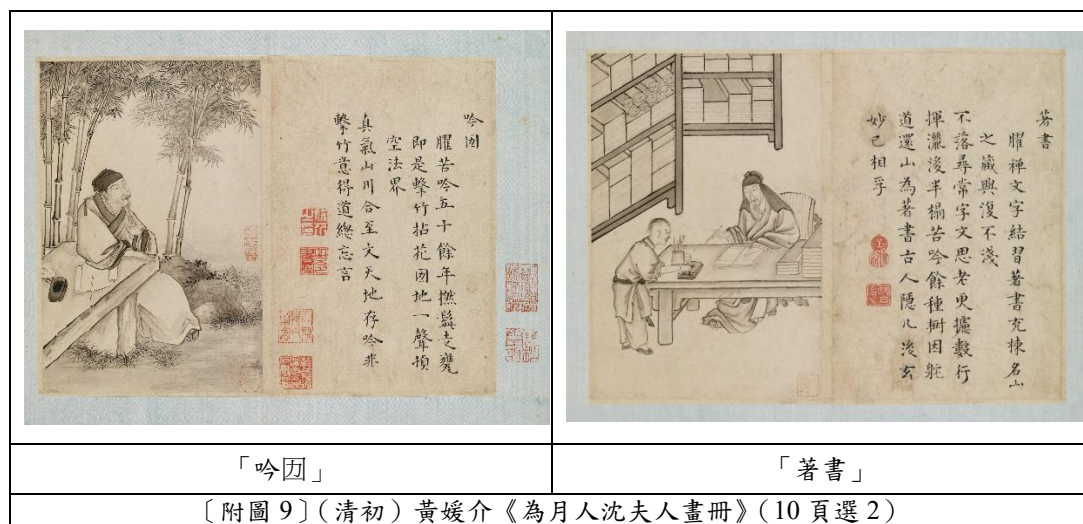 吟㘞
臞苦吟五十餘年撚髭走甕
即是擊竹拈花㘞地一聲頓
空法界
真氣山川合至文天地存吟非
擊竹意得道總忘言
著書
臞禪文字結習著書充棟名山
之藏興復不淺
不落尋常字文思老更攄數行
揮灑後半榻苦吟餘種樹因駝
道還山為著書古人隱几後玄
妙已相孚
「吟㘞」
「著書」
〔附圖 9〕(清初) 黃媛介《為月人沈夫人畫冊》(10 頁選 2)